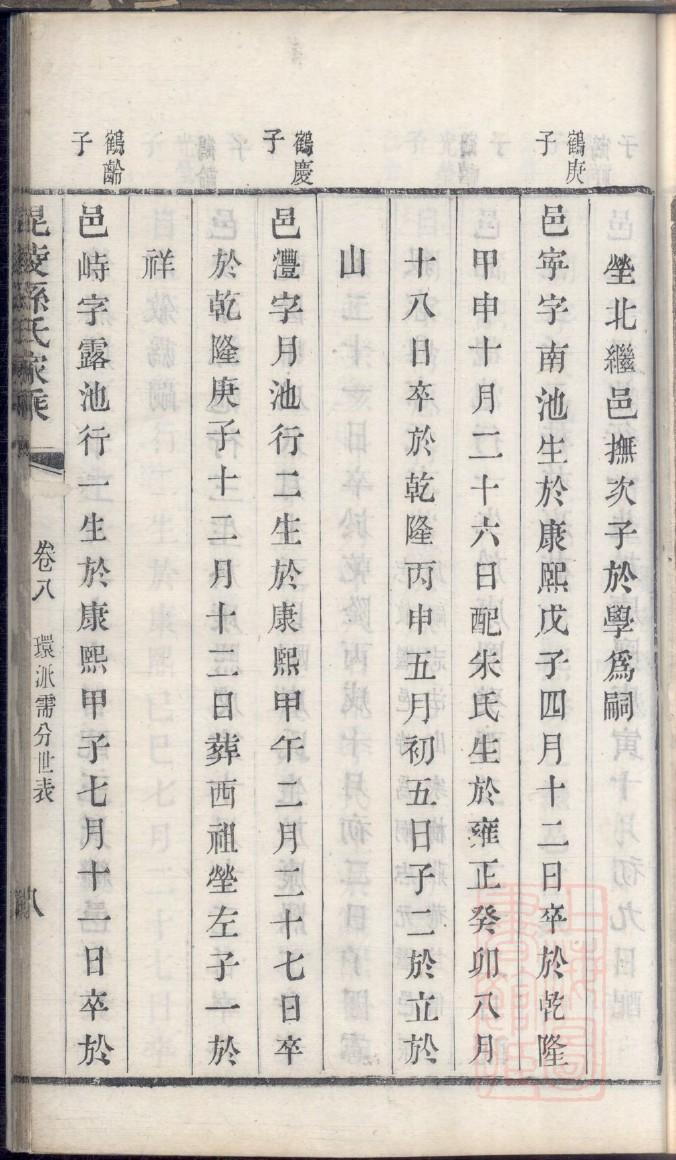 塋北繼邑撫次子於學爲嗣
鶴庚
子
邑寍字南池生於康熙戊子四月十二日卒於乾隆
甲申十月二十六日配朱氏生於雍正癸卯八月
十八日卒於乾隆丙申五月初五日子二於立於
山
鶴慶
子
邑灃字月池行二生於康熙甲午二月二十七日卒
於乾隆庚子十二月十二日葬西祖塋左子一於
祥
鶴齡
子
邑峙字露池行一生於康熙甲子七月十一日卒於
毘陵孫氏家乘
卷八
環派需分世表
八